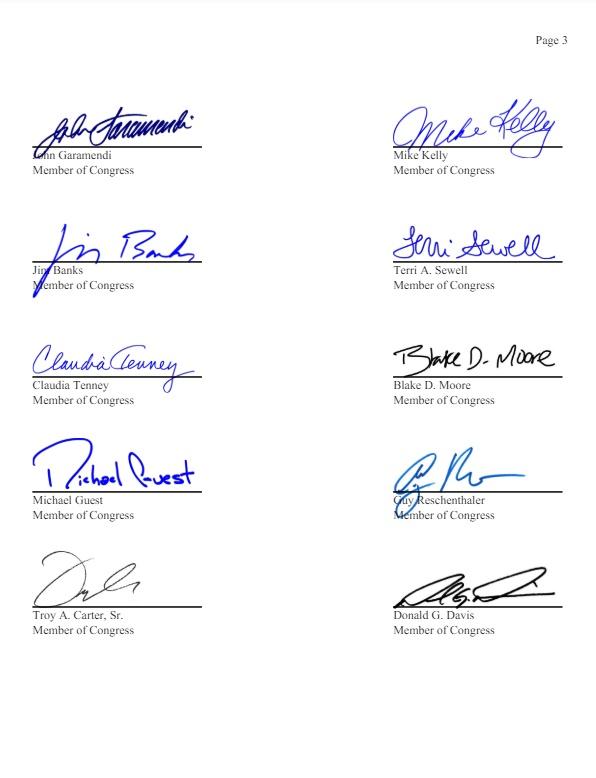 Page 3
John Garamendi
Mike Kelly
John Garamendi
Member of Congress
Mike Kelly
Member of Congress
Jim Banks
Terri Sewell
Jim Banks
Member of Congress
Terri A. Sewell
Member of Congress
Claudia Tenney
Blake D. Moore
Claudia Tenney
Member of Congress
Blake D. Moore
Member of Congress
Michael Guest
Michael Guest
Member of Congress
Guy Reschenthaler
Member of Congress
Troy A. Carter, Sr.
Member of Congress
Donald G. Davis
Member of Congress